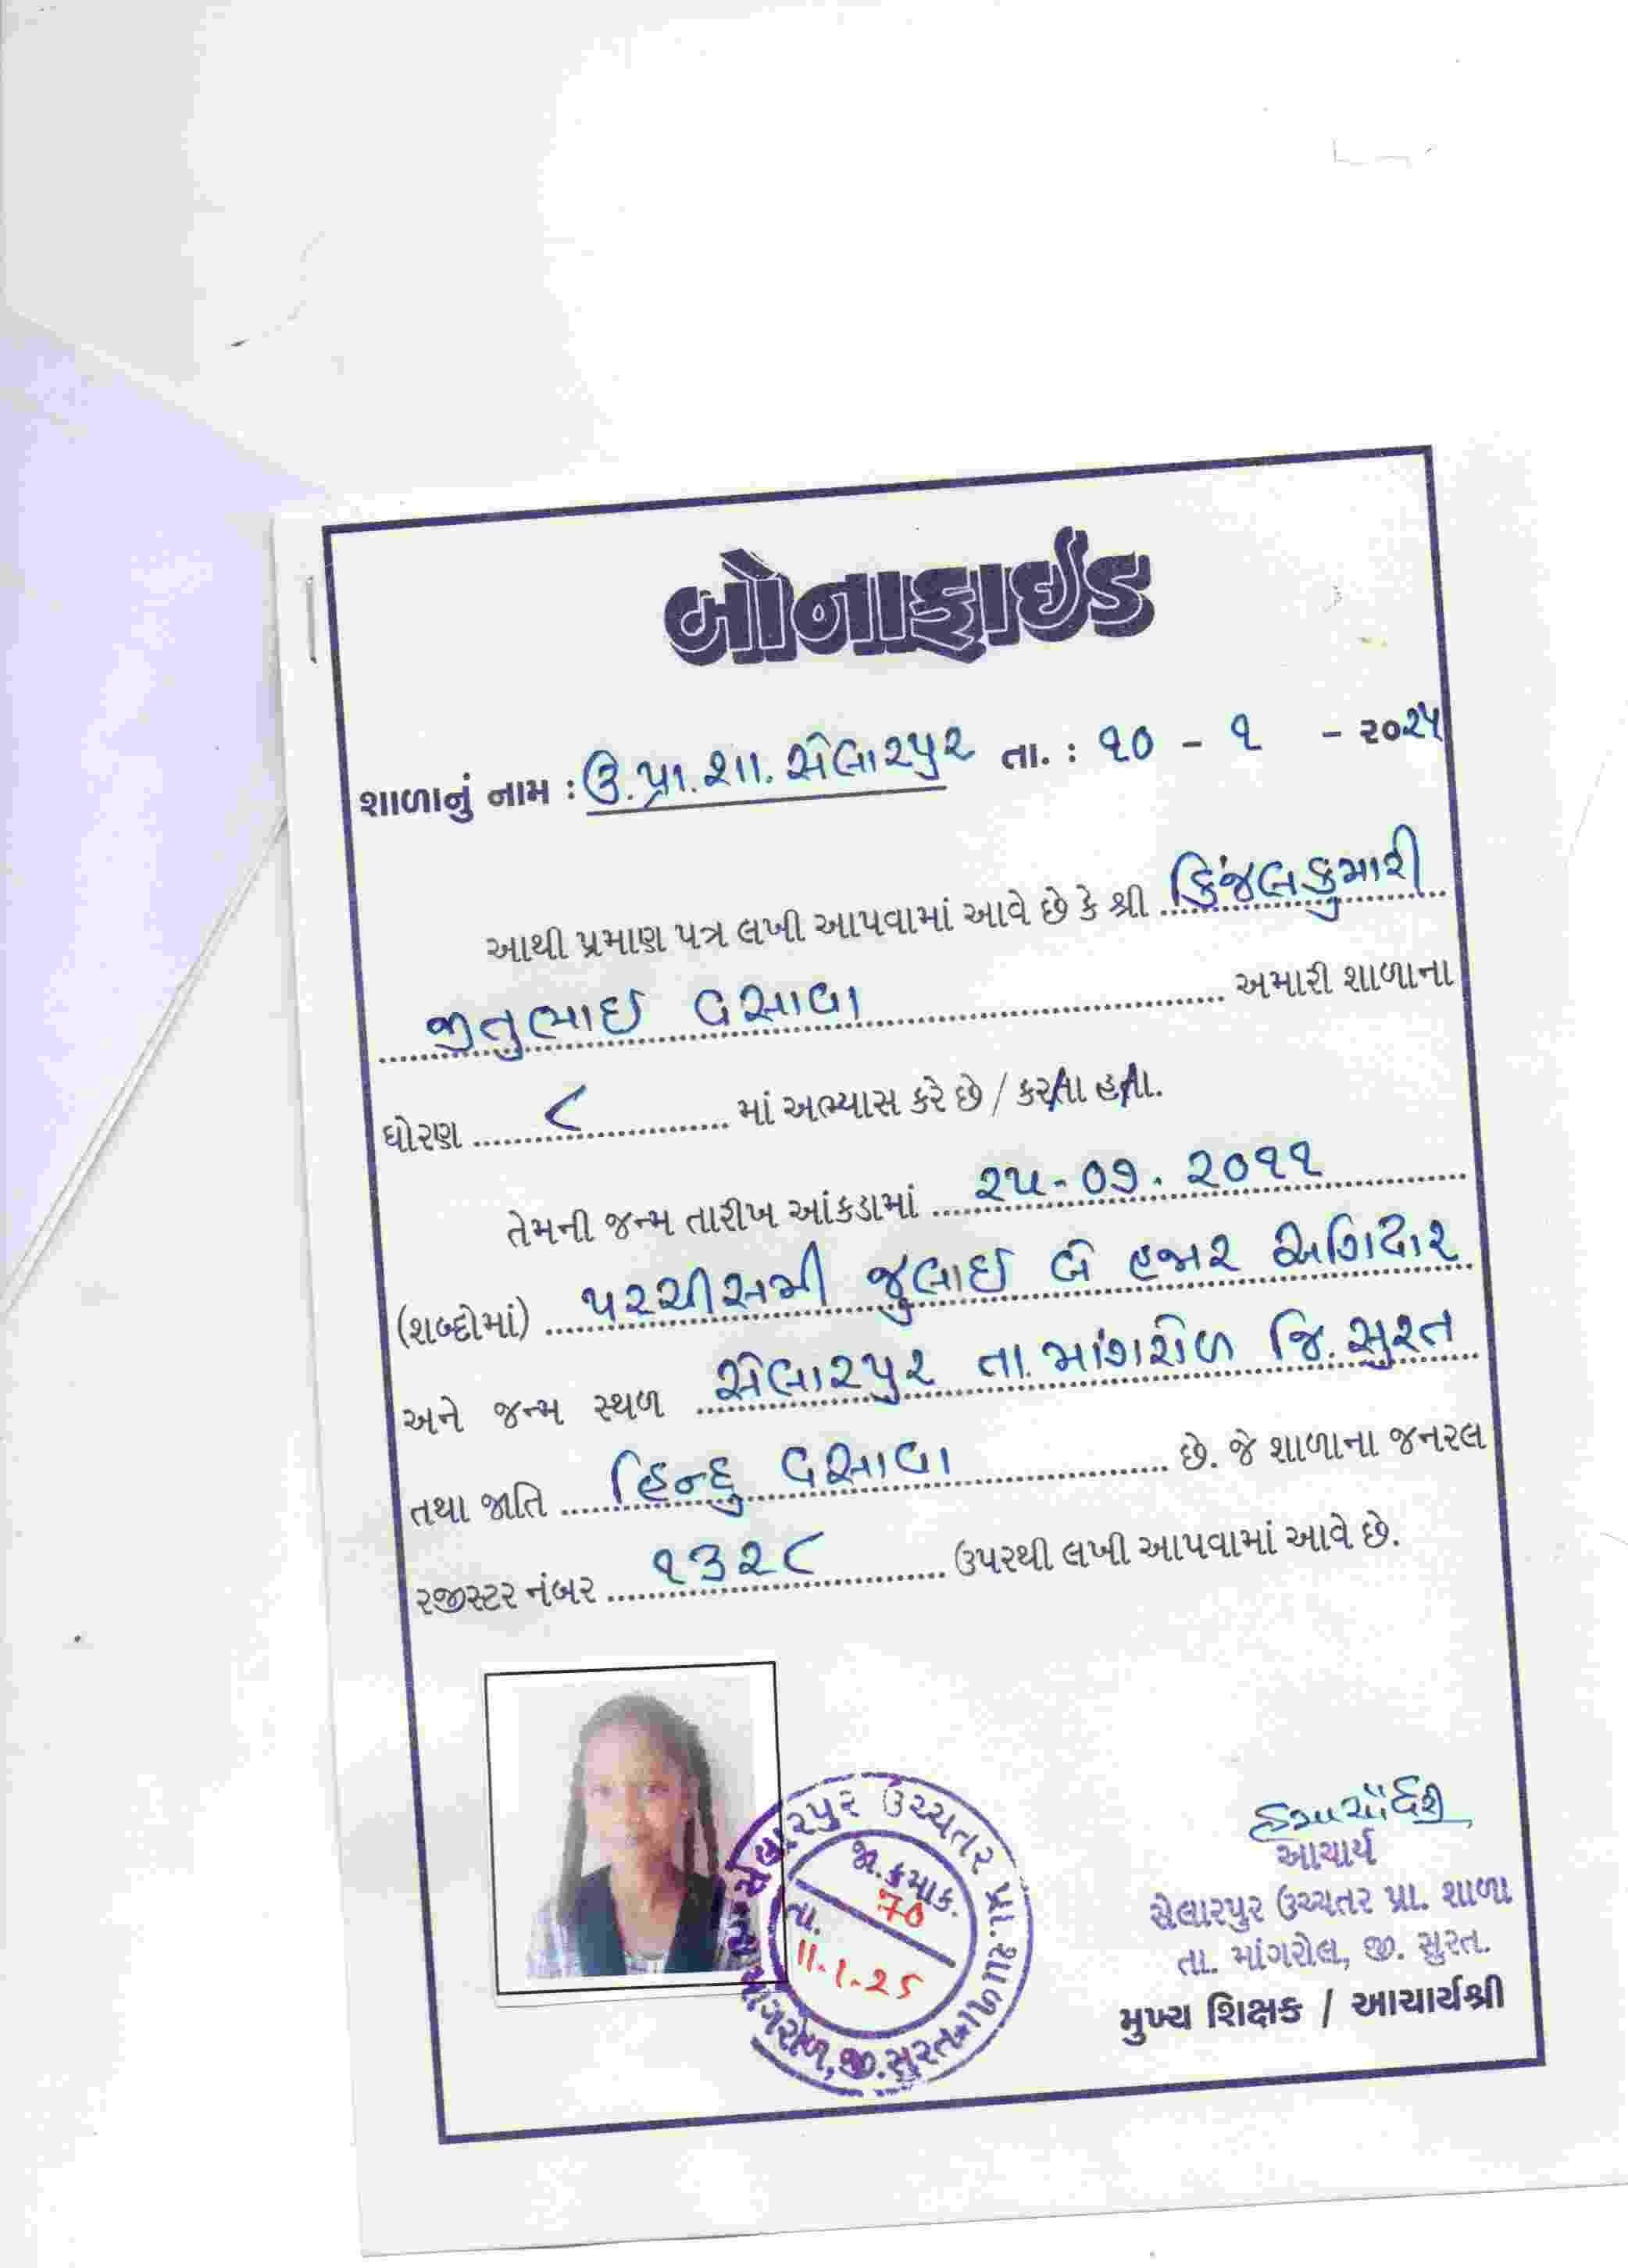 બોનાફાઈડ
શાળાનું નામ : ઉ.પ્રા.શા. સેલારપુર તા. : ૧૦ - ૧ - ૨૦૨૫
આથી પ્રમાણ પત્ર લખી આપવામાં આવે છે કે શ્રી કિંજલકુમારી
જીતુભાઈ વસાવા અમારી શાળાના
ધોરણ ૮ માં અભ્યાસ કરે છે / કરતા હતા.
તેમની જન્મ તારીખ આંકડામાં ૨૫-૦૭. ૨૦૧૧
(શબ્દોમાં) પચ્ચીસમી જુલાઈ બે હજાર અગિયાર
અને જન્મ સ્થળ સેલારપુર તા. માંગરોળ જિ. સુરત
તથા જાતિ હિન્દુ વસાવા છે. જે શાળાના જનરલ
રજીસ્ટર નંબર ૧૩૨૮ ઉપરથી લખી આપવામાં આવે છે.
સેલારપુર ઉચ્ચતર પ્રા. શાળા
જા. ક્રમાક.
70
તા.
11.1.25
માંગરોળ, જી. સુરત
આચાર્ય
સેલારપુર ઉચ્ચતર પ્રા. શાળા
તા. માંગરોલ, જી. સુરત.
મુખ્ય શિક્ષક / આચાર્યશ્રી